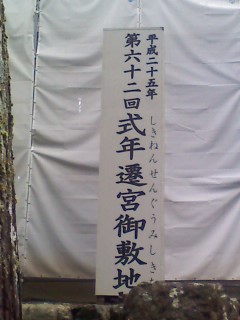 平成二十五年
第六十二回式年遷宮御敷地
しきねんせんぐうみしきち